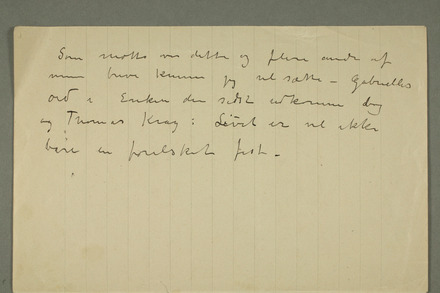 Som motto over dette og flere andre af
mine breve kunde jeg vel sætte - Gabrielles
ord i Enken den sidst udkomne bog
og Thomas Krag: Livet er vel ikke
bare en forelsket fest -